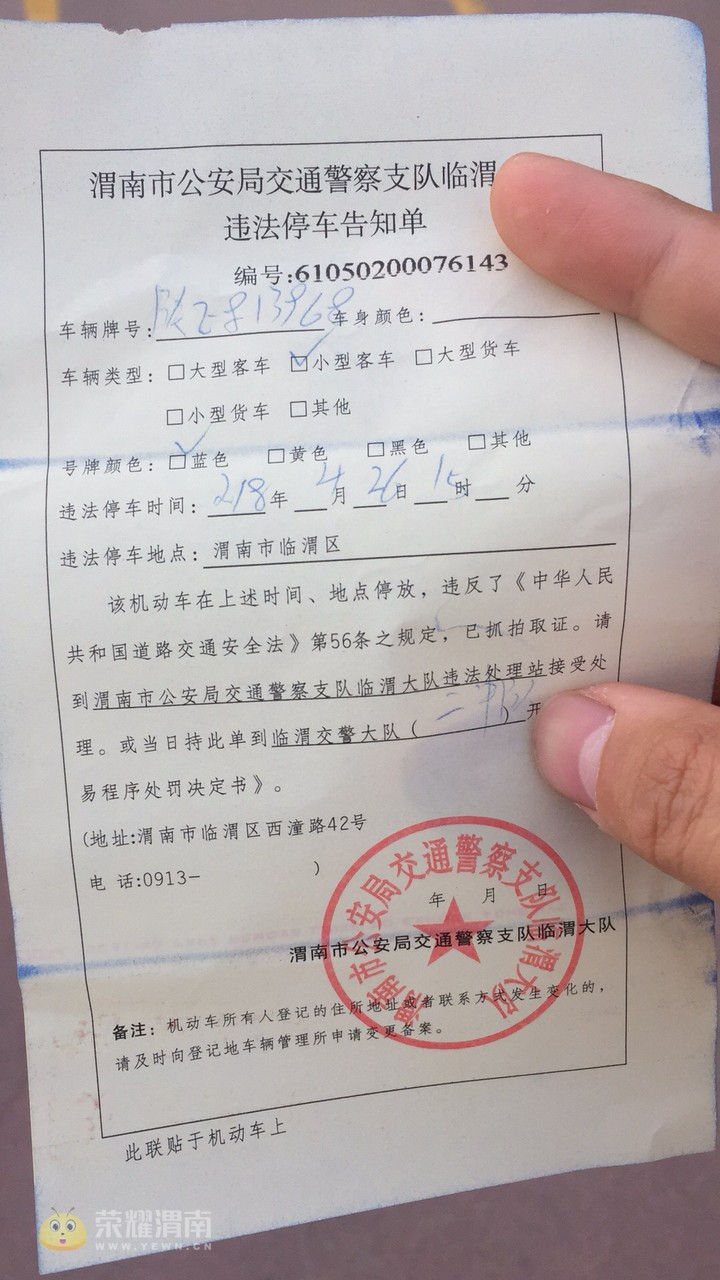 渭南市公安局交通警察支队临渭
违法停车告知单
编号:61050200076143
车辆牌号: 车身颜色:
车辆类型: □大型客车 ☑小型客车 □大型货车
□小型货车 □其他
号牌颜色: ☑蓝色 □黄色 □黑色 □其他
违法停车时间: 218年 4月 26日 15时 分
违法停车地点: 渭南市临渭区
该机动车在上述时间、地点停放，违反了《中华人民
共和国道路交通安全法》第56条之规定，已抓拍取证。请
到渭南市公安局交通警察支队临渭大队违法处理站接受处
理。或当日持此单到临渭交警大队（ ）开
易程序处罚决定书》。
(地址:渭南市临渭区西潼路42号
电 话:0913- )
年 月 日
渭南市公安局交通警察支队临渭大队
渭南市公安局交通警察支队临渭大队
备注: 机动车所有人登记的住所地址或者联系方式发生变化的，
请及时向登记地车辆管理所申请变更备案。
此联贴于机动车上
荣耀渭南
WWW.YEWN.CN